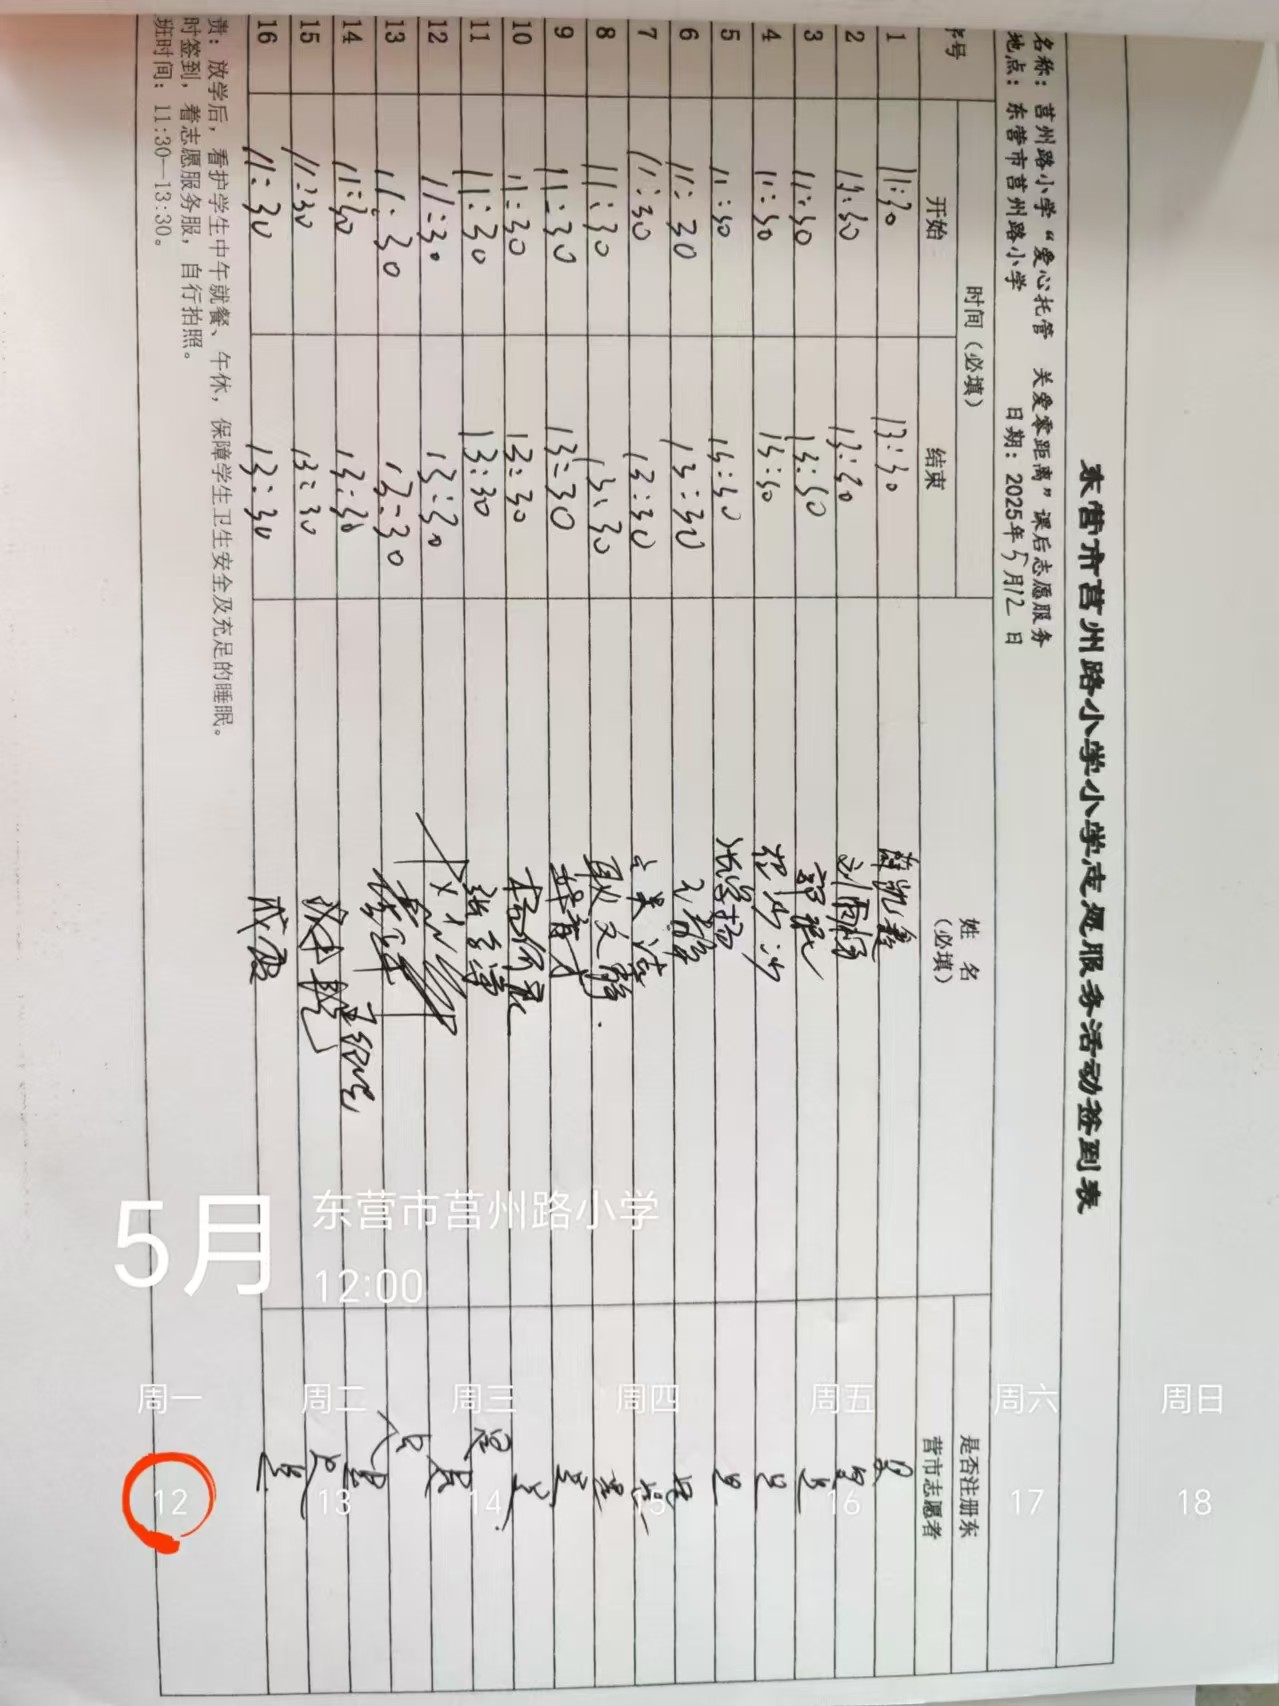 东营市莒州路小学小学志愿服务活动签到表
名称：莒州路小学“爱心托管 关爱零距离”课后志愿服务
地点：东营市莒州路小学 日期：2025年5月12日
序号 时间（必填） 姓名（必填） 是否注册东营市志愿者
开始 结束
1 11:30 13:30 是
2 13:30 13:30 是
3 11:30 13:30 郭 是
4 11:30 13:30 程沙沙 是
5 11:30 13:30 是
6 11:30 13:30 是
7 11:30 13:30 是
8 11:30 13:30 耿文静 是
9 11:30 13:30 是
10 11:30 13:30 杨 是
11 11:30 13:30 张 是
12 11:30 13:30 是
13 11:30 13:30 是
14 11:30 13:30 是
15 11:30 13:30 是
16 11:30 13:30 成霞 是
责：放学后，看护学生中午就餐、午休，保障学生卫生安全及充足的睡眠。
时签到，着志愿服务服，自行拍照。
班时间：11:30—13:30。
5月
东营市莒州路小学
12:00
周一 周二 周三 周四 周五 周六 周日
12 13 14 15 16 17 18